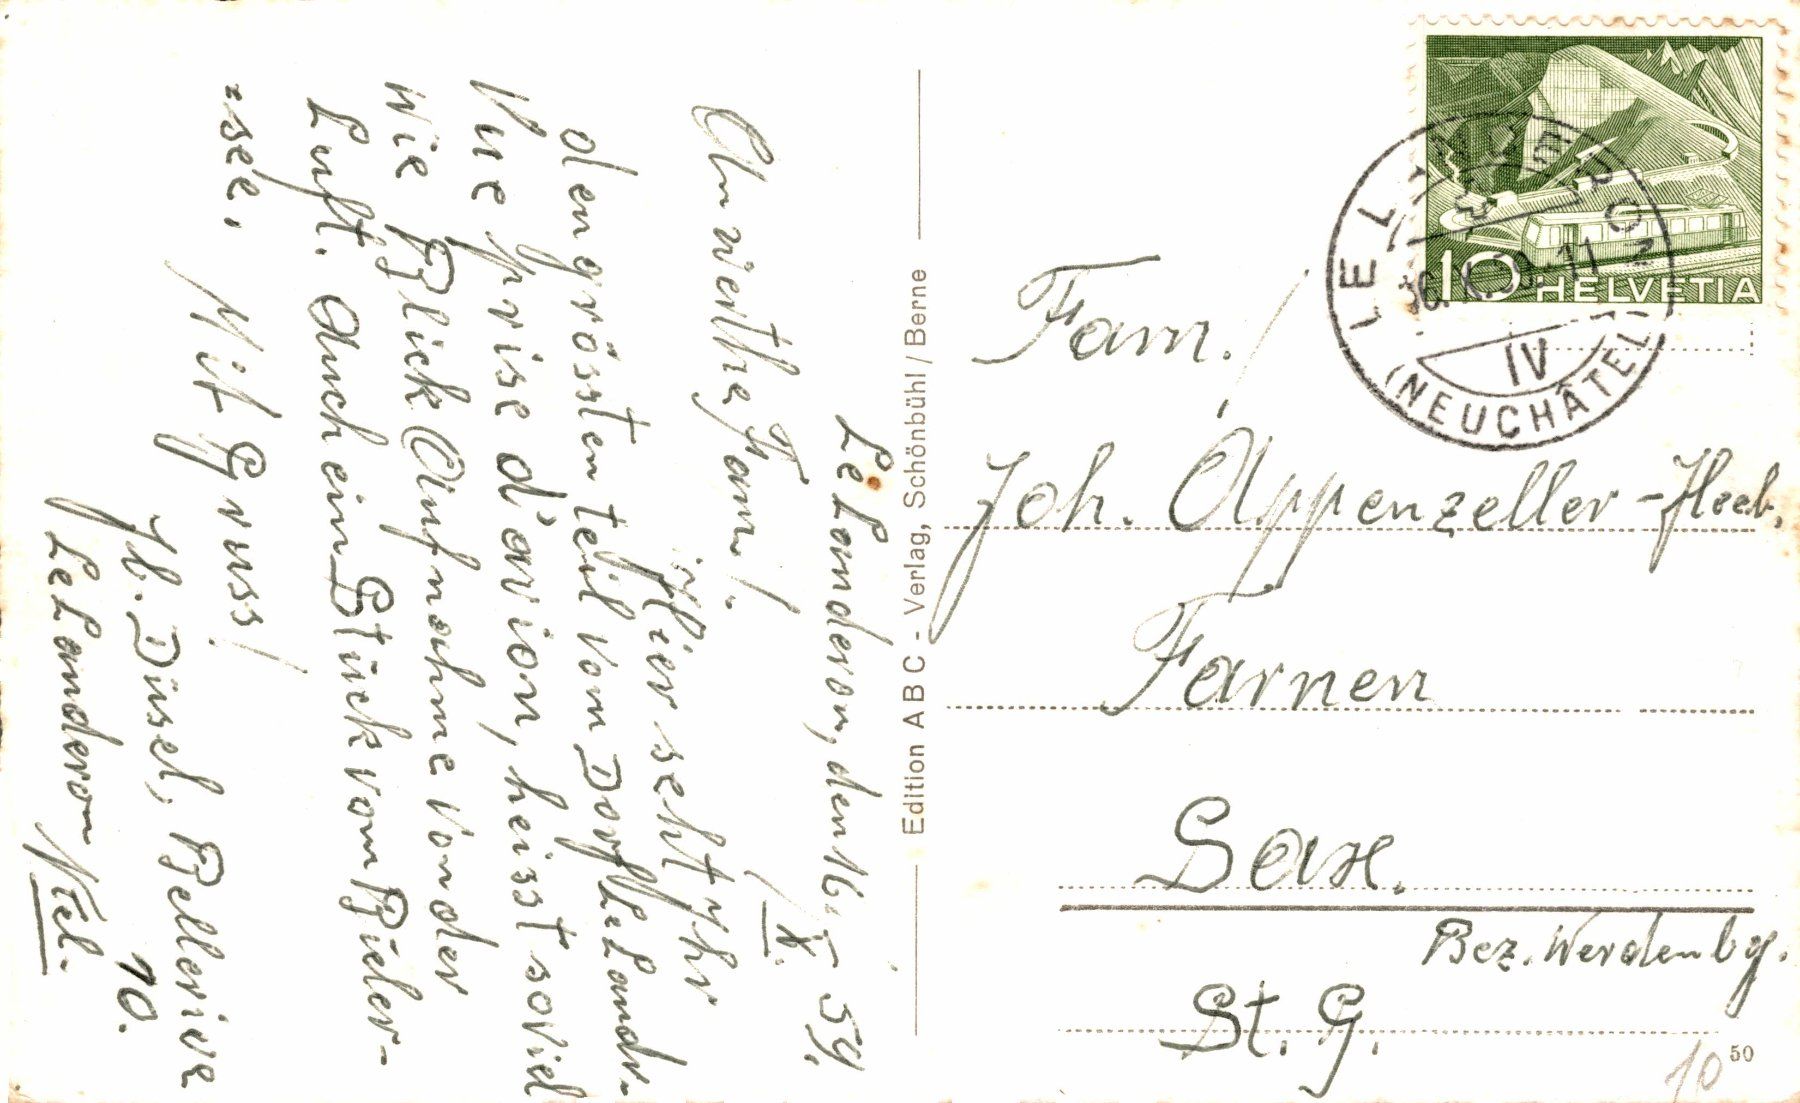 Le Landeron, den 16./X. 59.
An werthe Fam!
Hier seht Ihr
den grössten teil vom Dorf Le Landr-
Vue prise d'avion, heisst soviel
wie Blick Aufnahme von der
Luft. Auch ein Stück vom Bieler-
=see.
Mit Gruss!
Hb. Düsel, Bellerive
10.
Le Landeron Ntel.
Edition ABC - Verlag, Schönbühl / Berne
10 HELVETIA
LE LANDERON
X.59.-11
IV
(NEUCHÂTEL)
Fam.!
Joh. Appenzeller-Heeb,
Farnen
Sax.
Bez. Werdenbg.
St. G.
10
50